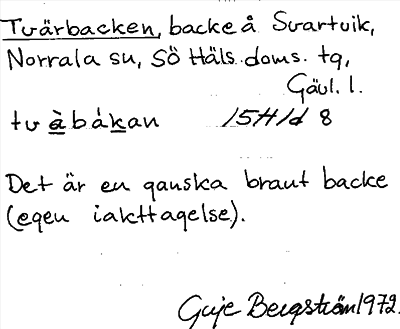 Tvärbacken, backe å Svartvik,
Norrala sn, Sö Häls. doms. tg,
Gävl. l.
tv à b á k an 15H1d 8
Det är en ganska brant backe
(egen iakttagelse).
Guje Bergström 1972.